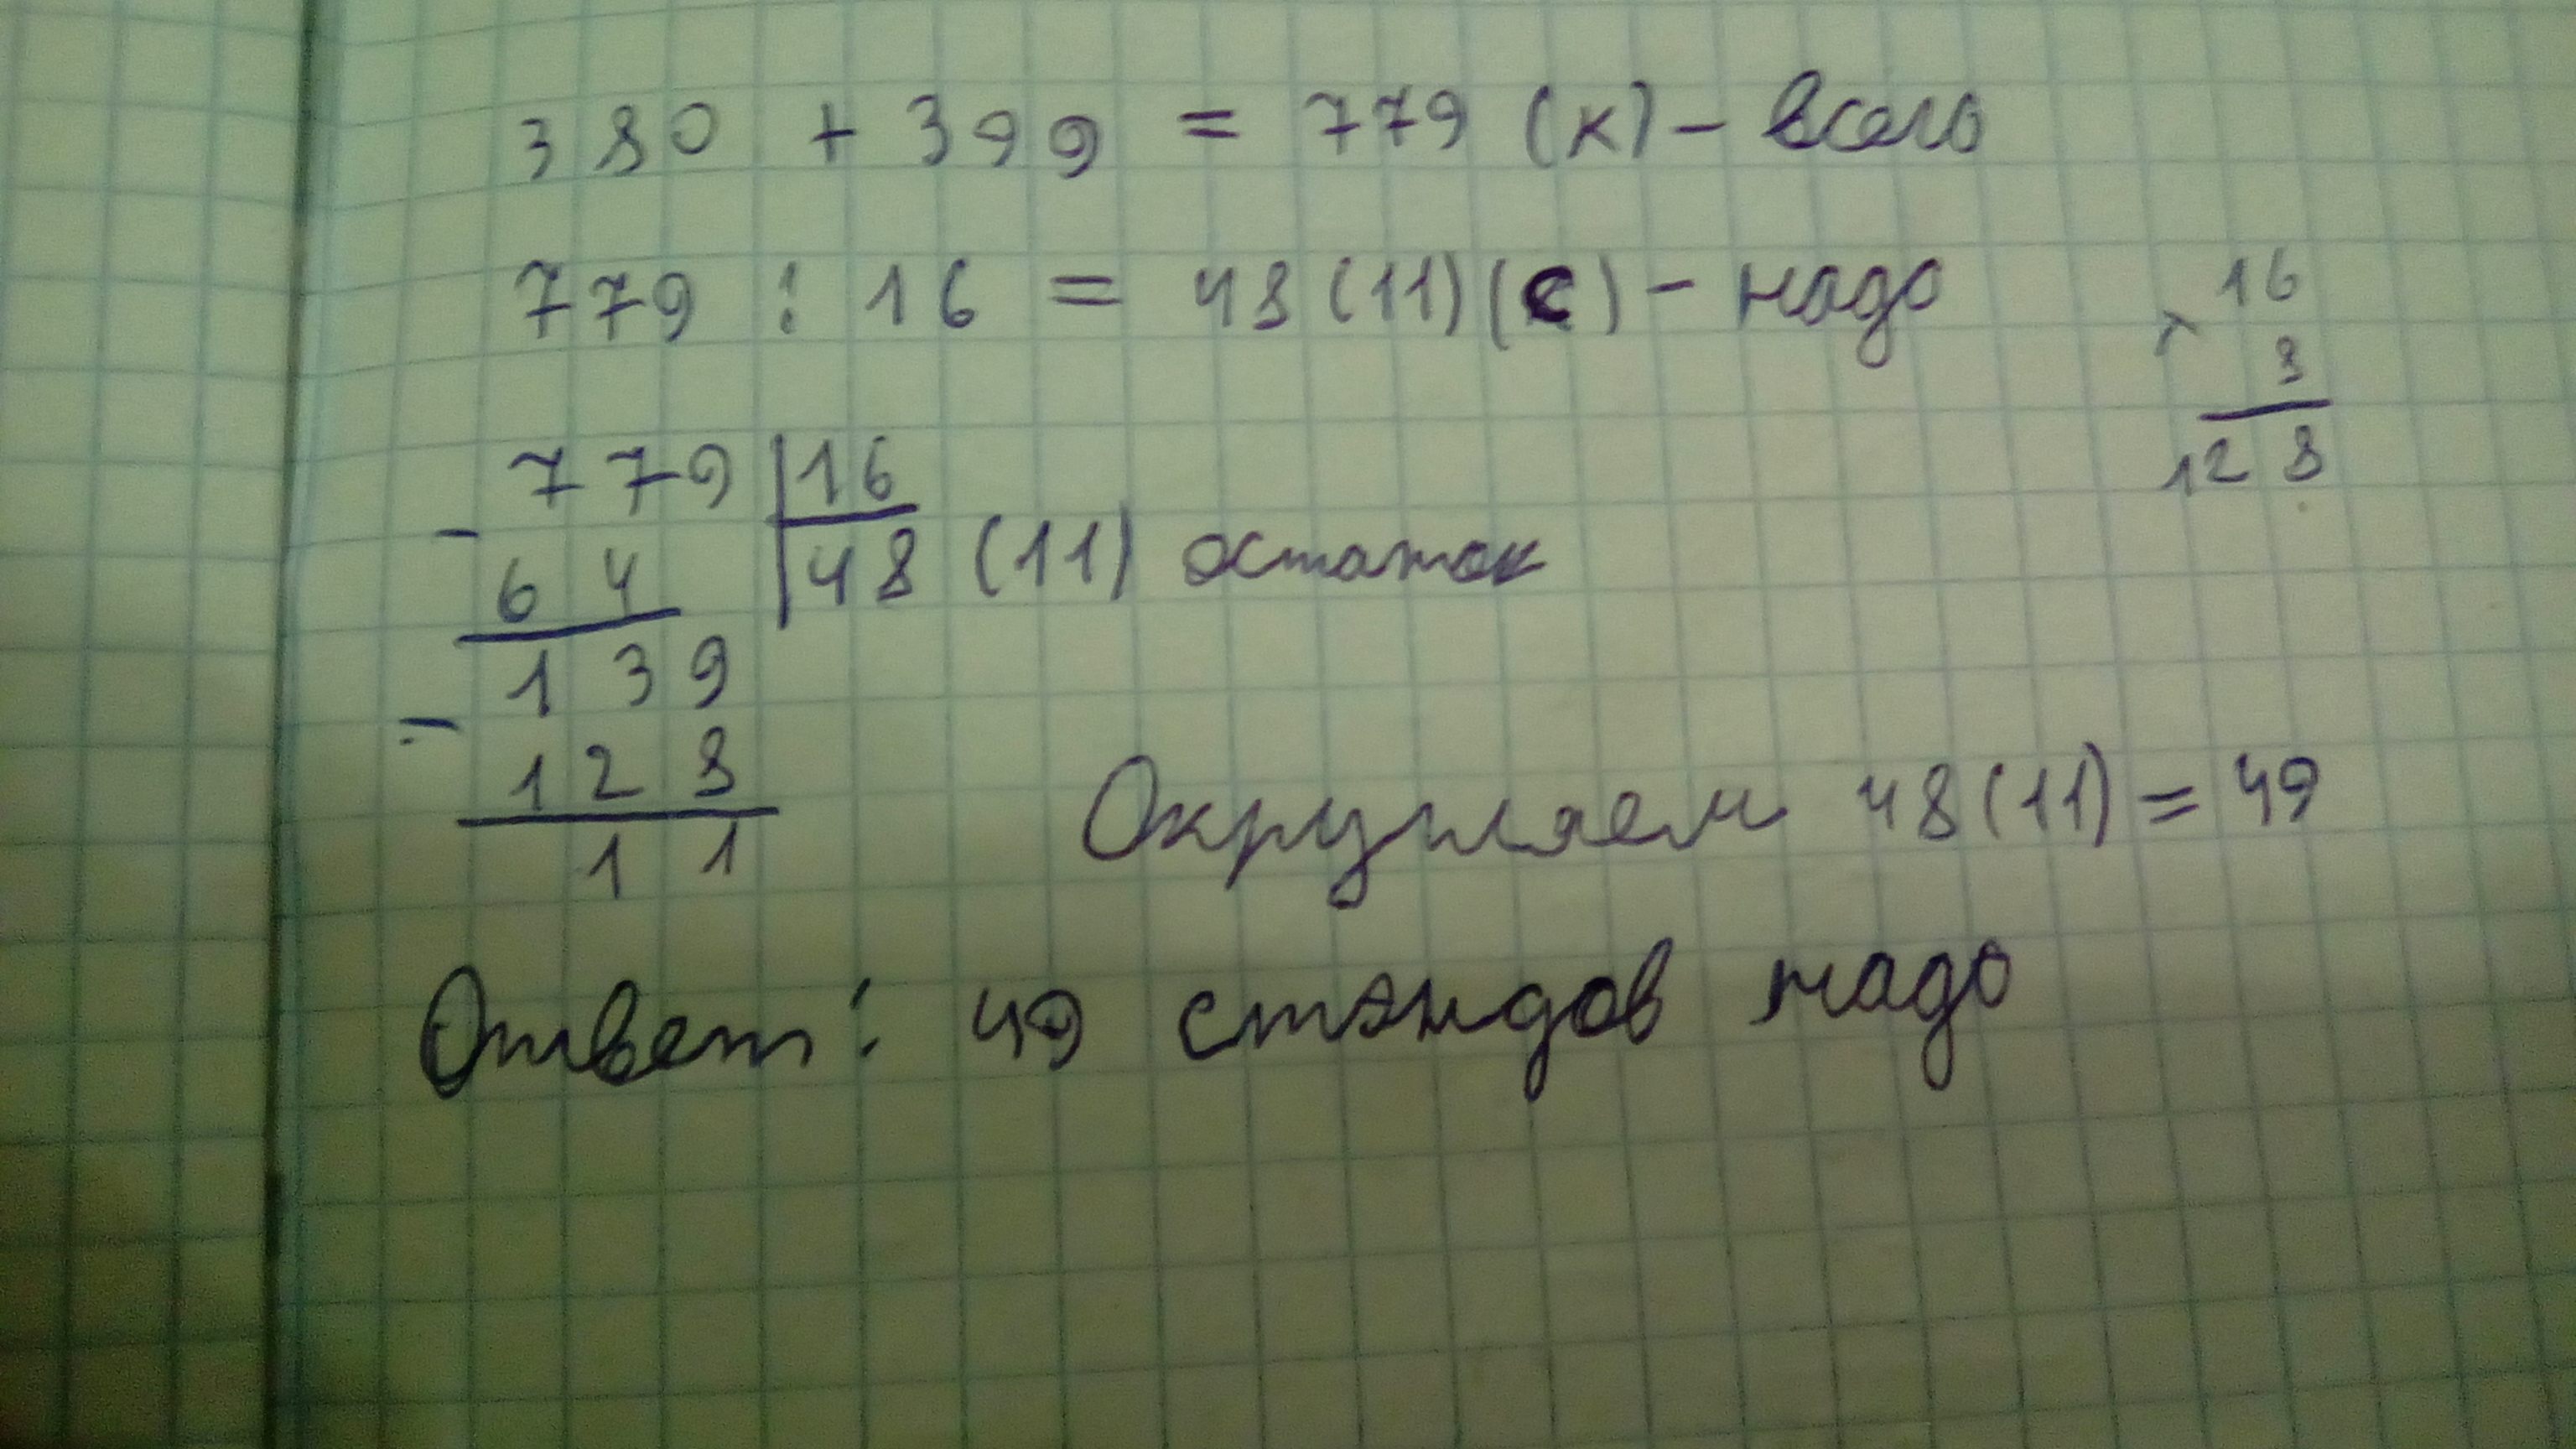 380 + 399 = 779 (к) - всего
779 : 16 = 48 (11) (с) - надо
16
× 8
128
779 | 16
- 64 | 48 (11) остаток
139
- 128
11
Округляем 48 (11) = 49
Ответ: 49 стэндов надо